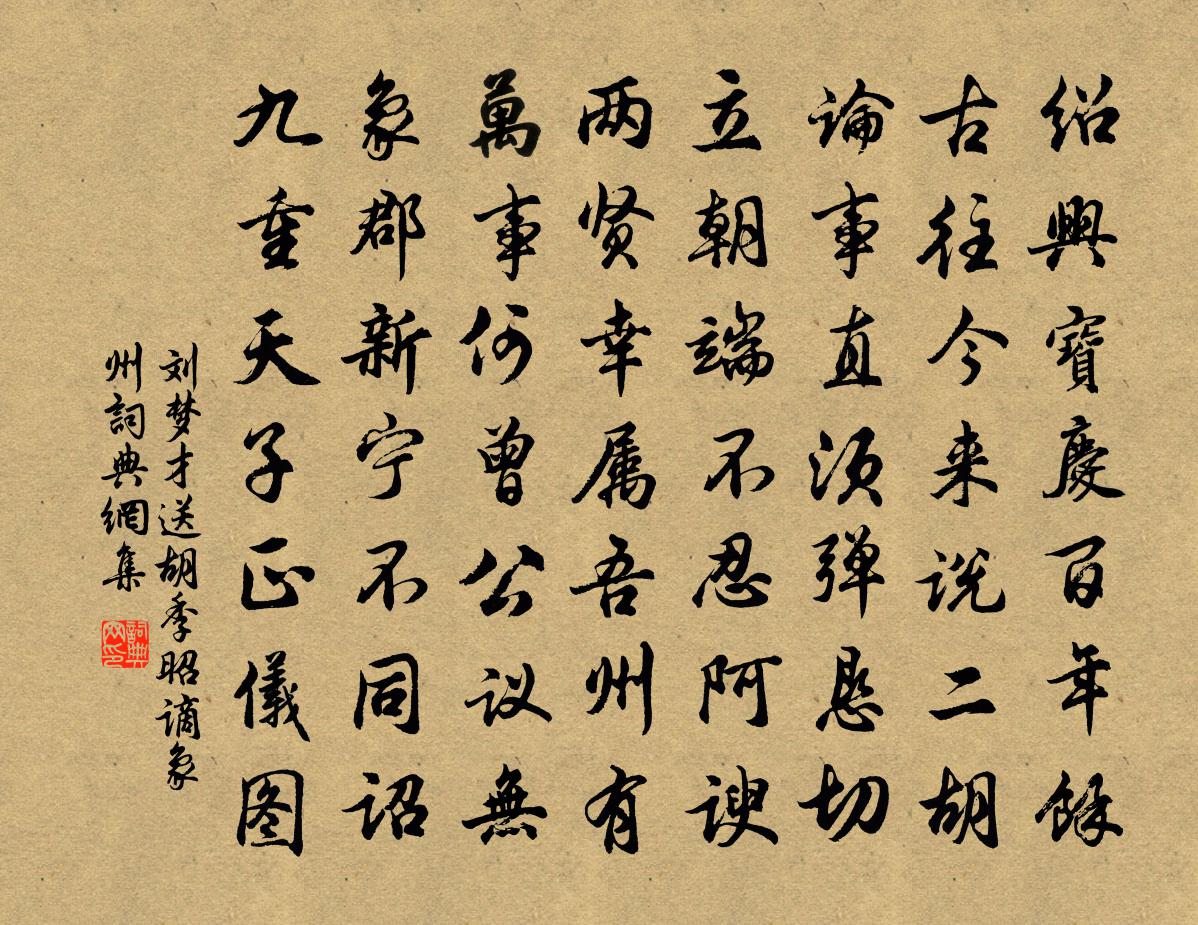 绍興寶慶百年餘
古往今来说二胡
論事直须弹恳切
立朝端不忍阿谀
两贤幸属吾州有
萬事何曾公议無
象郡新宁不同诏
九重天子正儀图
刘梦才送胡季昭谪象
州詞典網集
詞典网印